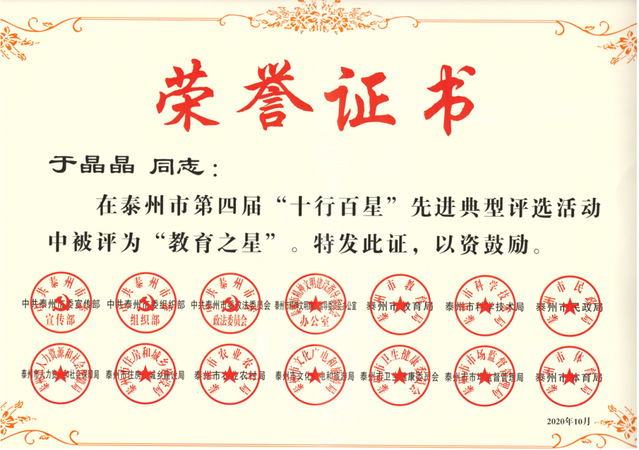 荣誉证书
于晶晶 同志：
在泰州市第四届“十行百星”先进典型评选活动
中被评为“教育之星”。特发此证，以资鼓励。
中共泰州市委宣传部 中共泰州市委组织部 中共泰州市委政法委员会 泰州市教育局 泰州市科学技术局 泰州市民政局
泰州市人力资源和社会保障局 泰州市住房和城乡建设局 泰州市农业农村局 泰州市文化广电和旅游局 泰州市卫生健康委员会 泰州市市场监督管理局 泰州市体育局
2020年10月